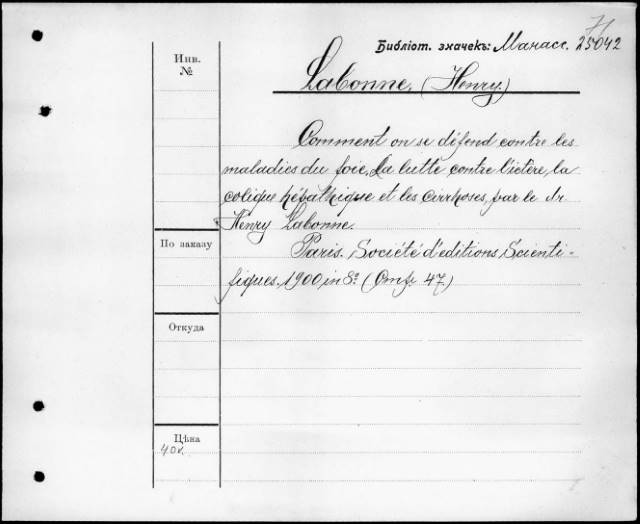 71
Библіот. значекъ: Манасс. 25042
Инв.
№
Labonne. (Henry.)
Comment on se défend contre les
maladies du foie. La lutte contre l'ictère, la
colique hépathique et les cirrhoses, par le dr
Henry Labonne.
По заказу
Paris. Société d'editions Scienti-
fiques. 1900 in 8º (Стр. 47)
Откуда
Цѣна
40к.